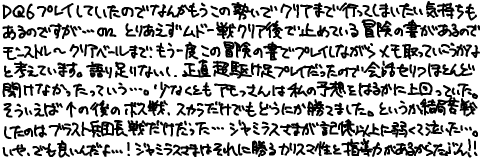 DQ6プレイしていたのでなんかもうこの勢いでクリアまで行ってしまいたい気持ちも
あるのですが…on とりあえずムドー戦クリア後で止めている冒険の書があるので
モンストル〜クリアベールまでもう一度この冒険の書でプレイしながらメモ取っていこうかな
と考えています。語り足りないし、正直超駆け足プレイだったので会話もりつほとんど
聞けなかったっていう…。少なくともアモっさんは私の予想をはるかに上回っていた。
そういえばその後のボス戦、スカラだけでもどうにか勝てました。というか結局苦戦
したのはブラスト兵団長戦だけだった…ジャミラスさまが記憶以上に弱くて泣いたい…。
いや、でも良いんだよ…!ジャミラスさまはそれに勝るカリスマ性と指導力があるからたぶん!!